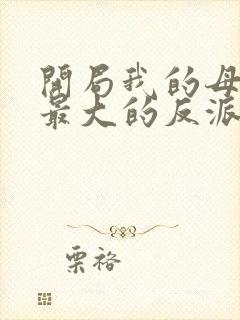 開局我的母
最大的反派
栗褡